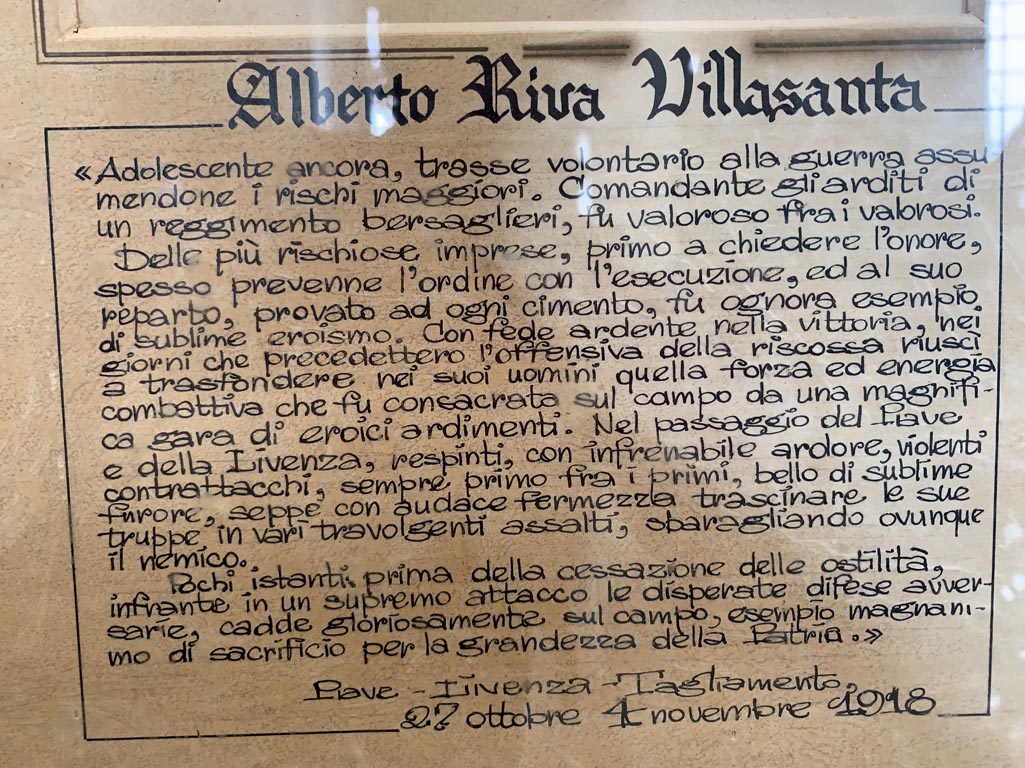 Alberto Riva Villasanta
«Adolescente ancora, trasse volontario alla guerra assu
mendone i rischi maggiori. Comandante gli arditi di
un reggimento bersaglieri, fu valoroso fra i valorosi.
Delle più rischiose imprese, primo a chiedere l'onore,
spesso prevenne l'ordine con l'esecuzione, ed al suo
reparto, provato ad ogni cimento, fu ognora esempio
di sublime eroismo. Con fede ardente nella vittoria, nei
giorni che precedettero l'offensiva della riscossa riuscì
a trasfondere nei suoi uomini quella forza ed energia
combattiva che fu consacrata sul campo da una magnifi-
ca gara di eroici ardimenti. Nel passaggio del Piave
e della Livenza, respinti, con infrenabile ardore, violenti
contrattacchi, sempre primo fra i primi, bello di sublime
furore, seppe con audace fermezza trascinare le sue
truppe in vari travolgenti assalti, sbaragliando ovunque
il nemico.
Pochi istanti prima della cessazione delle ostilità,
infrante in un supremo attacco le disperate difese avver-
sarie, cadde gloriosamente sul campo, esempio magnani-
mo di sacrificio per la grandezza della Patria.»
Piave - Livenza - Tagliamento,
27 ottobre 4 novembre 1918